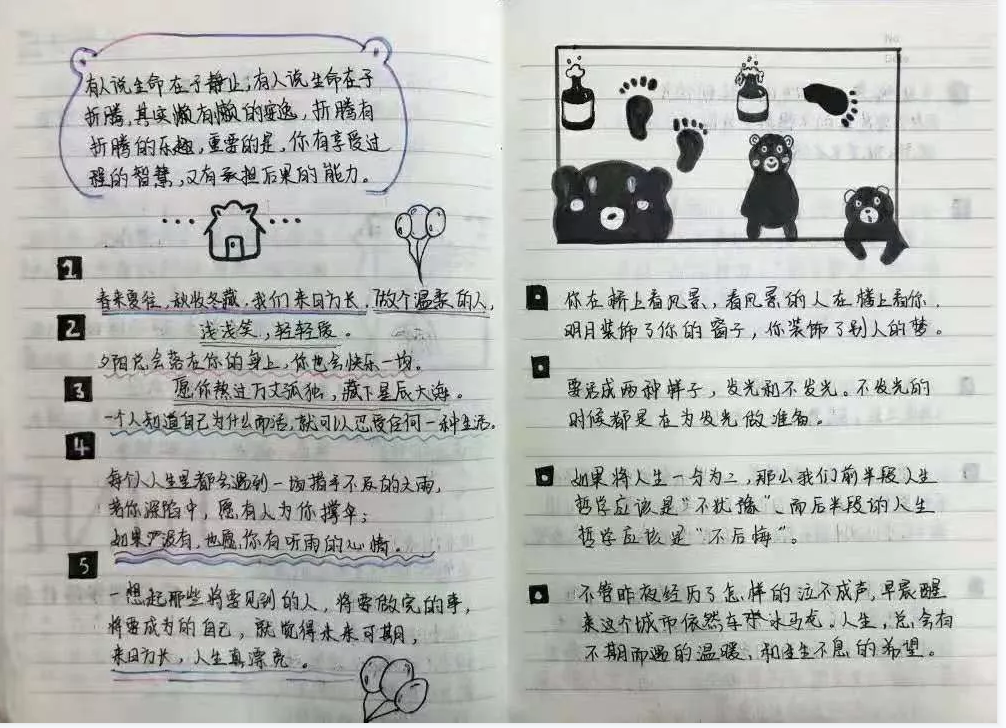 有人说生命在于静止,有人说生命在于
折腾,其实懒有懒的安逸,折腾有
折腾的乐趣,重要的是,你有享受过
程的智慧,又有承担后果的能力。
1
春来夏往,秋收冬藏,我们来日方长,做个温柔的人,
2
浅浅笑,轻轻爱。
夕阳总会落在你的身上,你也会快乐一场。
3
愿你熬过万丈孤独,藏下星辰大海。
一个人知道自己为什么而活,就可以忍受任何一种生活。
4
每个人生里都会遇到一场措手不及的大雨,
若你深陷中,愿有人为你撑伞;
如果没有,也愿你有听雨的心情。
5
一想起那些将要见到的人,将要做完的事,
将要成为的自己,就觉得未来可期,
来日方长,人生真漂亮。
你在桥上看风景,看风景的人在楼上看你.
明月装饰了你的窗子,你装饰了别人的梦。
要活成两种样子,发光和不发光。不发光的
时候都是在为发光做准备。
如果将人生一分为二,那么我们前半段人生
哲学应该是"不犹豫"、而后半段的人生
哲学应该是"不后悔"。
不管昨夜经历了怎样的泣不成声,早晨醒
来这个城市依然车水马龙.人生,总会有
不期而遇的温暖,和生生不息的希望。